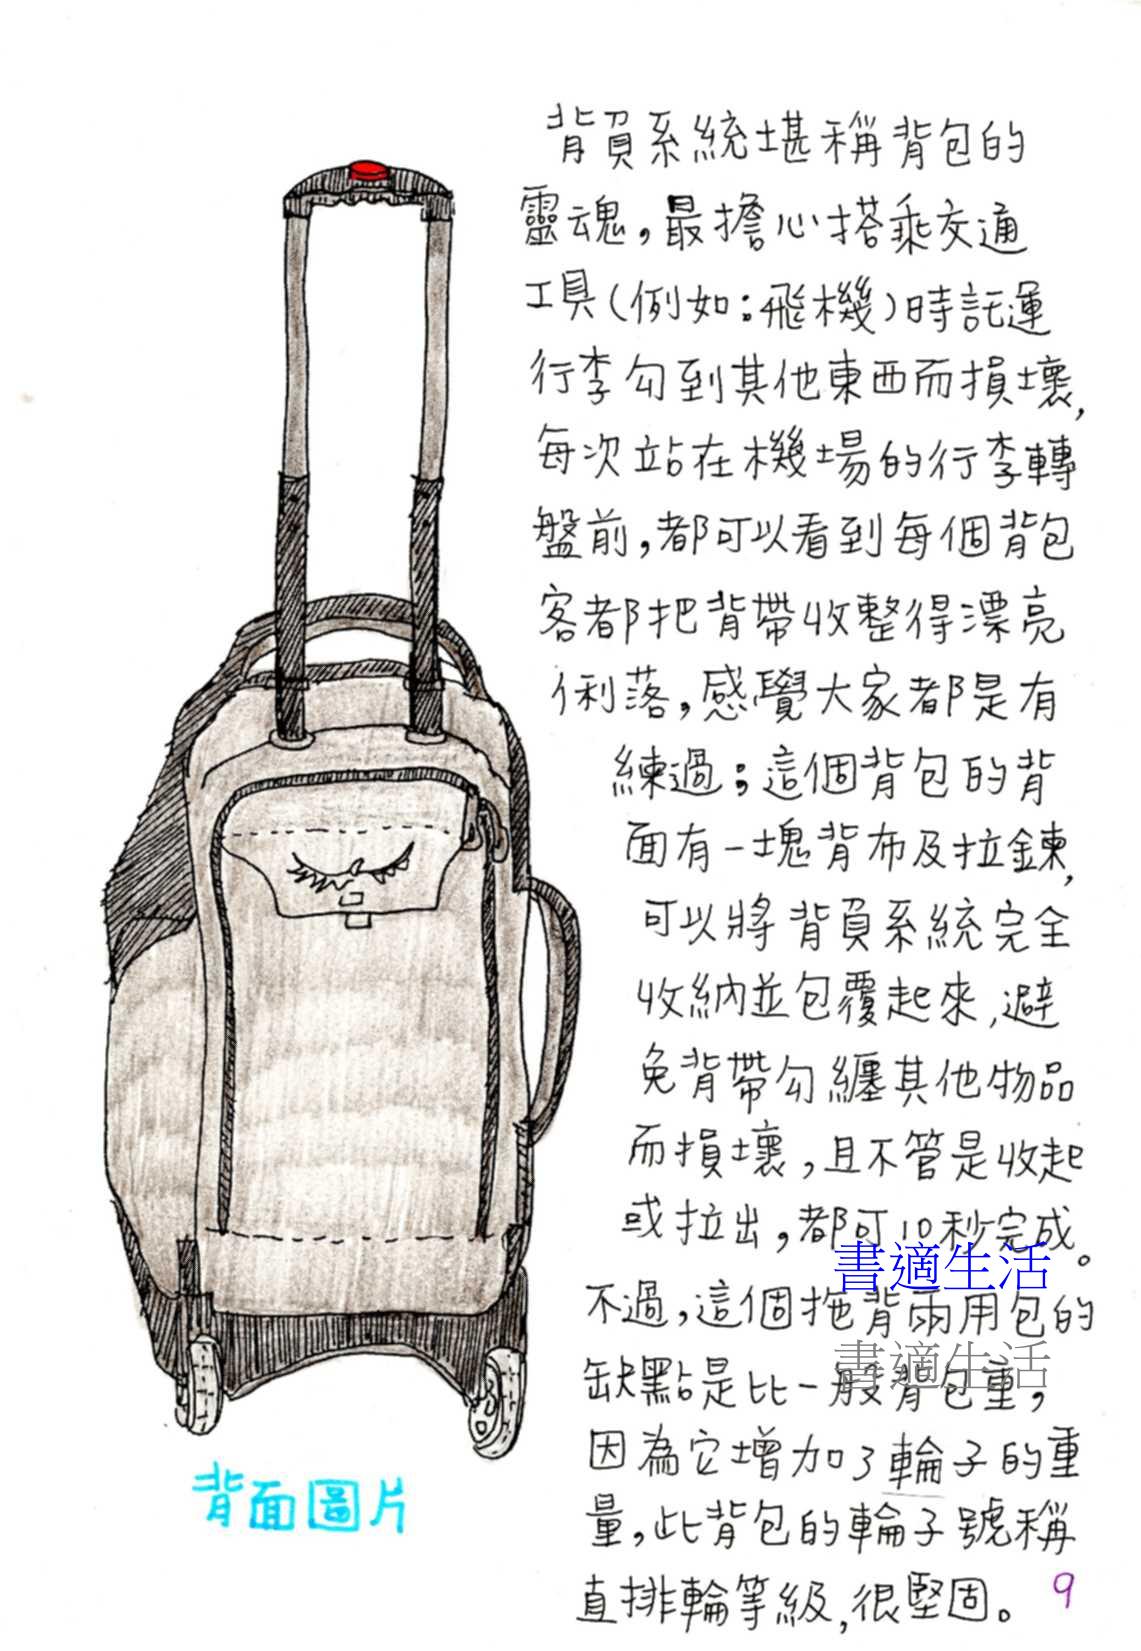 背負系統堪稱背包的
靈魂，最擔心搭乘交通
工具(例如:飛機)時託運
行李勾到其他東西而損壞,
每次站在機場的行李轉
盤前,都可以看到每個背包
客都把背帶收整得漂亮
俐落,感覺大家都是有
練過；這個背包的背
面有一塊背布及拉鍊,
可以將背負系統完全
收納並包覆起來,避
免背帶勾纏其他物品
而損壞,且不管是收起
或拉出,都可10秒完成。
書適生活
不過,這個拖背兩用包的
書適生活
缺點是比一般背包重,
因為它增加了輪子的重
量,此背包的輪子號稱
直排輪等級,很堅固。
背面圖片
9